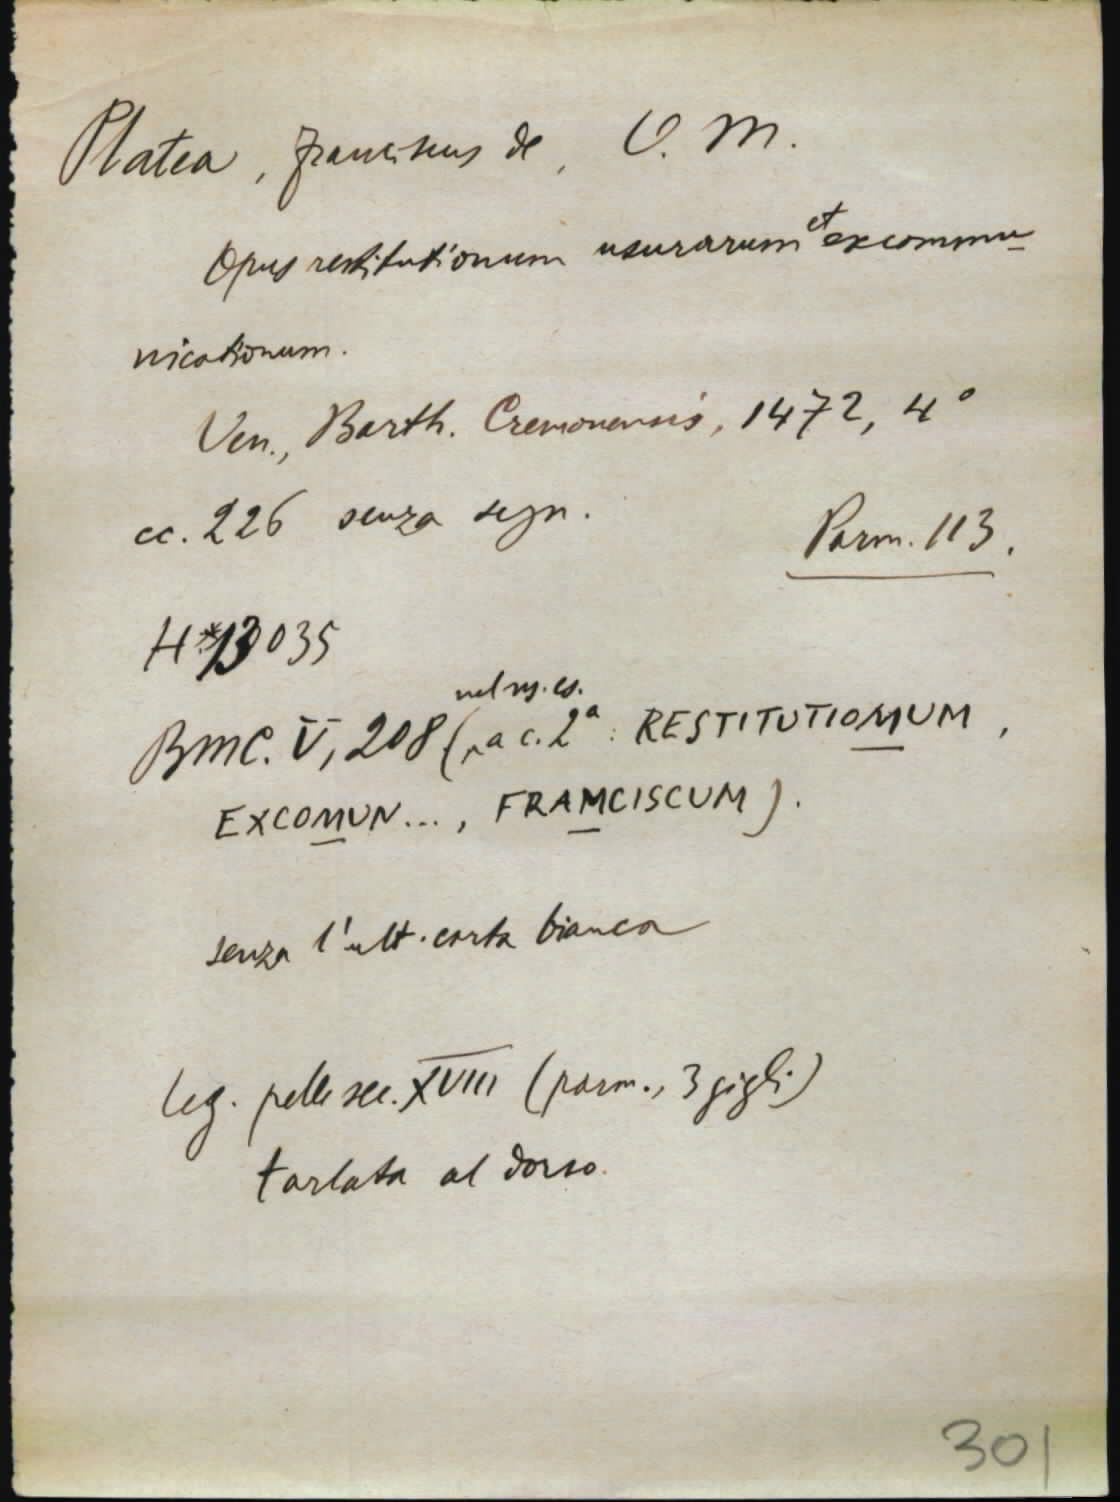 Platea, Franciscus de, O. M.
Opus restitutionum usurarum et excommu-
nicationum.
Ven., Barth. Cremonensis, 1472, 4°
cc. 226 senza segn.
Parm. 113.
H*13035
BMC. V, 208 (nel ns. es. a c. 2ª: RESTITUTIOMUM,
EXCOMUN..., FRAMCISCUM).
senza l'ult. carta bianca
leg. pelle sec. XVIII (parm., 3 gigli)
tarlata al dorso.
301